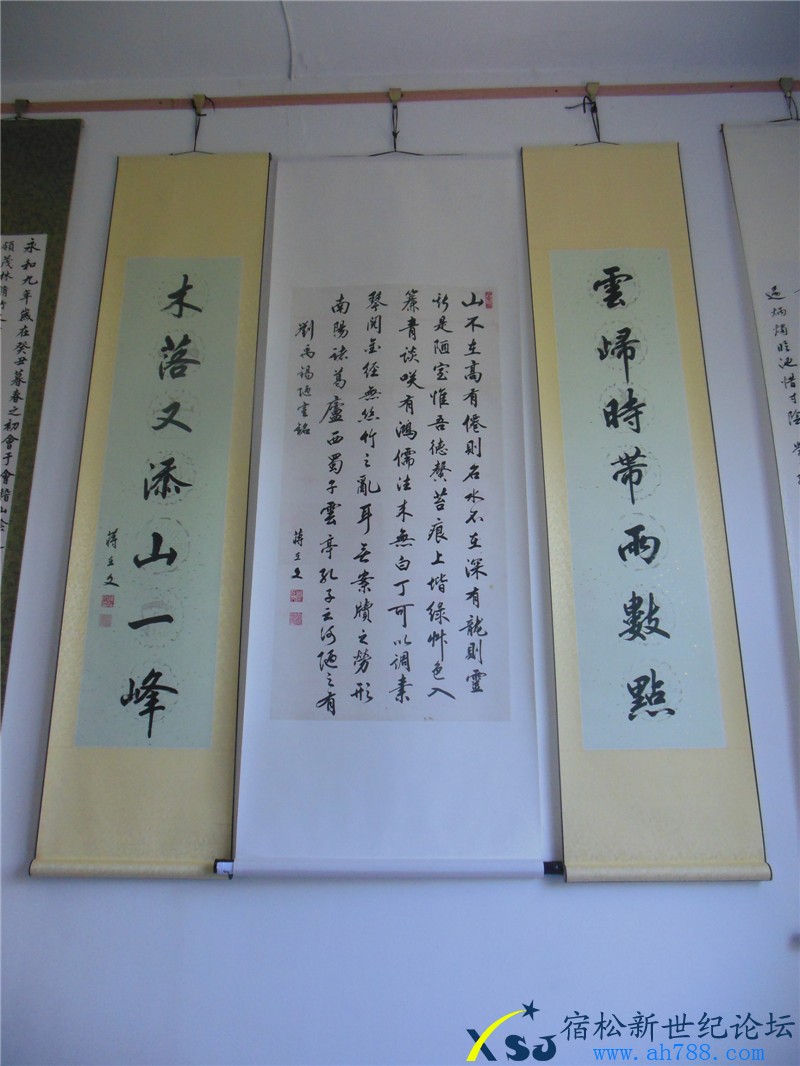 過炳燭臨池惜寸陰
雲歸時帶雨數點
山不在高有僊則名水不在深有龍則靈
斯是陋室惟吾德馨苔痕上堦綠艸色入
簾青談咲有鴻儒往来無白丁可以調素
琴閱金經無絲竹之亂耳无案牘之勞形
南陽諸葛廬西蜀子雲亭孔子云何陋之有
劉禹錫陋室銘
蔣立文
木落又添山一峰
蔣立文
永和九年歲在癸丑暮春之初會于會稽山陰
領茂林脩竹
XSJ 宿松新世纪论坛
www.ah788.com